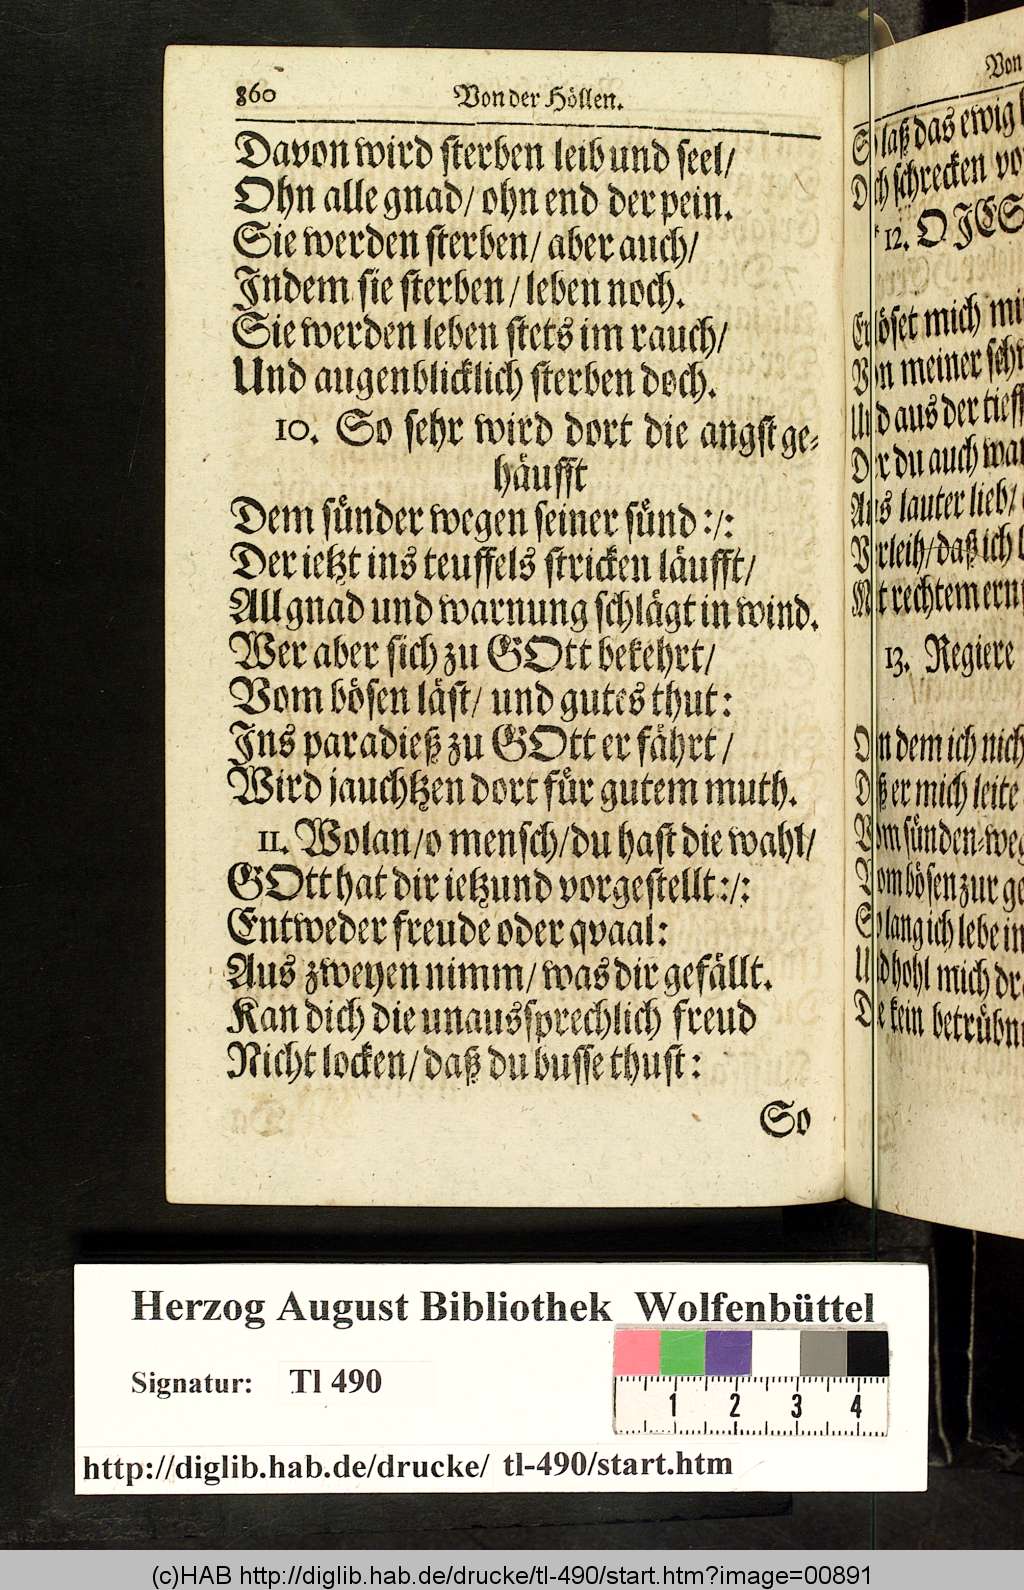 860
Von der Höllen.
Davon wird sterben leib und seel/
Ohn alle gnad/ ohn end der pein.
Sie werden sterben/ aber auch/
Indem sie sterben/ leben noch.
Sie werden leben stets im rauch/
Und augenblicklich sterben doch.
10. So sehr wird dort die angst ge-
häufft
Dem sünder wegen seiner sünd :/:
Der ietzt ins teuffels stricken läufft/
All gnad und warnung schlägt in wind.
Wer aber sich zu GOtt bekehrt/
Vom bösen läst/ und gutes thut:
Ins paradieß zu GOtt er fährt/
Wird jauchtzen dort für gutem muth.
11. Wolan/ o mensch/ du hast die wahl/
GOtt hat dir ietzund vorgestellt :/:
Entweder freude oder qvaal:
Aus zweyen nimm/ was dir gefällt.
Kan dich die unaussprechlich freud
Nicht locken/ daß du busse thust:
So
Von
So laß das ewig
schrecken
12. O JES
Erlöset mich
Von meiner
Und aus der
Der du auch
Aus lauter lieb/
Verleih/ daß ich
Mit rechtem
13. Regiere
On dem ich
Daß er mich leite
Vom sünden-
Vom bösen zur
So lang ich lebe
Und hohl mich
Die kein
Herzog August Bibliothek Wolfenbüttel
Signatur: Tl 490
1 2 3 4
http://diglib.hab.de/drucke/ tl-490/start.htm
(c)HAB http://diglib.hab.de/drucke/tl-490/start.htm?image=00891